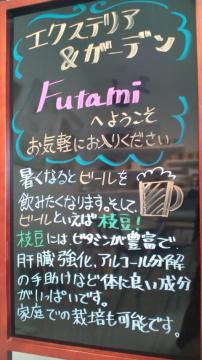 エクステリア
&ガーデン
Futami
へようこそ
お気軽にお入りください
暑くなるとビールを
飲みたくなります。そして、
ビールといえば枝豆!
枝豆にはビタミンが豊富で、
肝臓強化、アルコール分解
の手助けなど体に良い成分
がいっぱいです。
家庭での栽培も可能です。